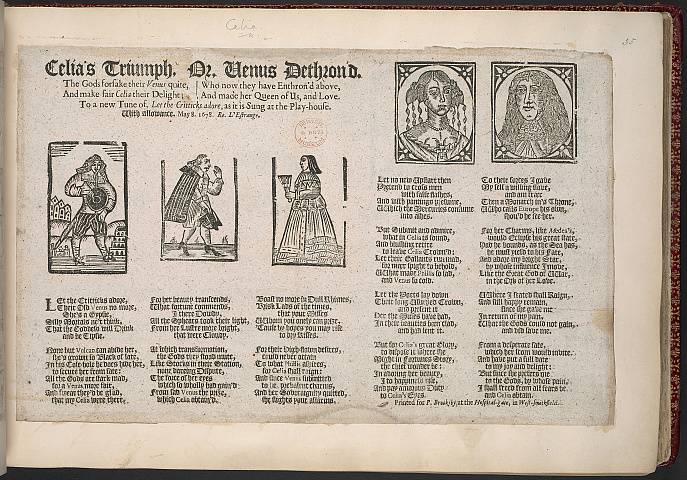 Celia
35
Celia's Triumph, Or, Venus Dethron'd.
The Gods forsake their Venus quite,
And make fair Celia their Delight;
Who now they have Enthron'd above,
And made her Queen of Us, and Love.
To a new Tune of, Let the Critticks adore, as it is Sung at the Play-house.
With allowance. May 8. 1678. Ro. L'Estrange.
LEt the Critticks adore,
their Old Venus no more,
She's a Gypsie,
Silly Mortals ne'r think,
That the Goddess will Drink
and be Tipsie.
None but Vulcan can abide her,
he's grown so Black of late,
In his Cole-hole he does hide her,
to secure her from fate:
All the Gods are stark mad,
for a Venus more fair,
And swear they'd be glad,
that my Celia were there.
For her beauty transcends,
What fortune commends,
I there Doudy,
All the Sphears took their light,
From her Lustre more bright,
that were Cloudy.
At which transformation,
the Gods they stood mute,
Like Stocks in their Station,
none daring Dispute,
The voice of her eyes
which so wholly had gain'd:
From sad Venus the prize,
which Celia obtain'd.
Boast no more in Dull Rhimes,
Brisk Lads of the times,
that your Misses
Whom you onely can prize,
'Cause by hopes you may rise
to dry kisses.
For their high-flown desires,
could never attain
To what aspires,
for Celia shall reign:
And since Venus submitted
to i.e. prevalent charms,
And her Soveraignty quitted,
she slights your allarms.
Let no new Upstart then
Pretend to cross men
with false flashes,
And with paintings presume,
Which the Mercuries consume
into ashes.
But Submit and admire,
what in Celia is found,
And blushing retire
to leave Celia Crown'd:
Let their Gallants turmoil,
far more spight to behold,
What made Celia so sad,
and Venus so cold.
Let the Poets lay down
Their long Usurped Crown,
and present it
For the Muses have bow'd,
In their beauties been clad,
and has lent it.
But for Celia's great Glory,
to dispose it where she
Might in Fortunes Story,
the chief wonder be:
In adoring her beauty,
I to happiness rise,
And pay annuous Duty
to Celia's Eyes.
To their forces I gave
My self a willing slave,
and am freer
Then a Monarch in's Throne,
Who calls Europe his own,
shou'd he see her.
For her Charms, like Medea's,
would Eclipse his great state,
And he bound, as the Sea has,
he must yield to his Fate,
And adore my bright Star,
by whose influence I move,
Like the Great God of War,
in the Orb of her Love.
Where I seated shall Reign,
And still happy remain,
since the gave me
In return of my pain,
What the Gods could not gain,
and did have me.
From a desperate fate,
which her scorn wou'd invite,
And have put a full date
to my joy and delight:
But since she prefers me
to the Gods, by whose pain,
I shall freed from all fears be
and Celia obtain.
Printed for P. Brooksby, at the Hospital-gate, in West-smithfield.